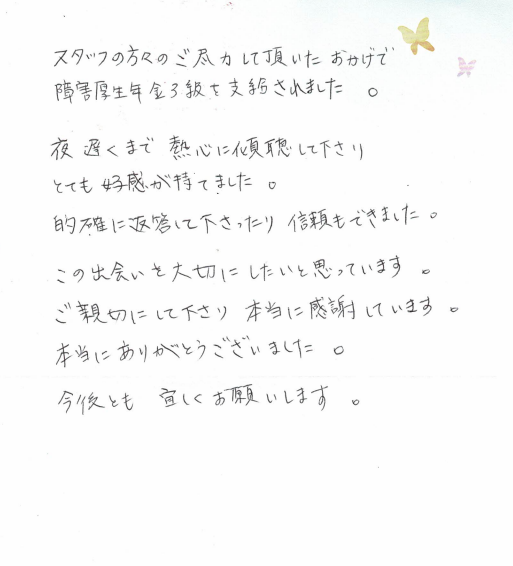 スタッフの方々のご尽力して頂いた おかげで
障害厚生年金3級を支給されました 。
夜 遅くまで 熱心に傾聴して下さり
とても 好感が持てました 。
的確に返答して下さったり 信頼もできました 。
この出会いを大切にしたいと思っています 。
ご親切にして下さり 本当に感謝しています 。
本当にありがとうございました 。
今後とも 宜しくお願いします 。